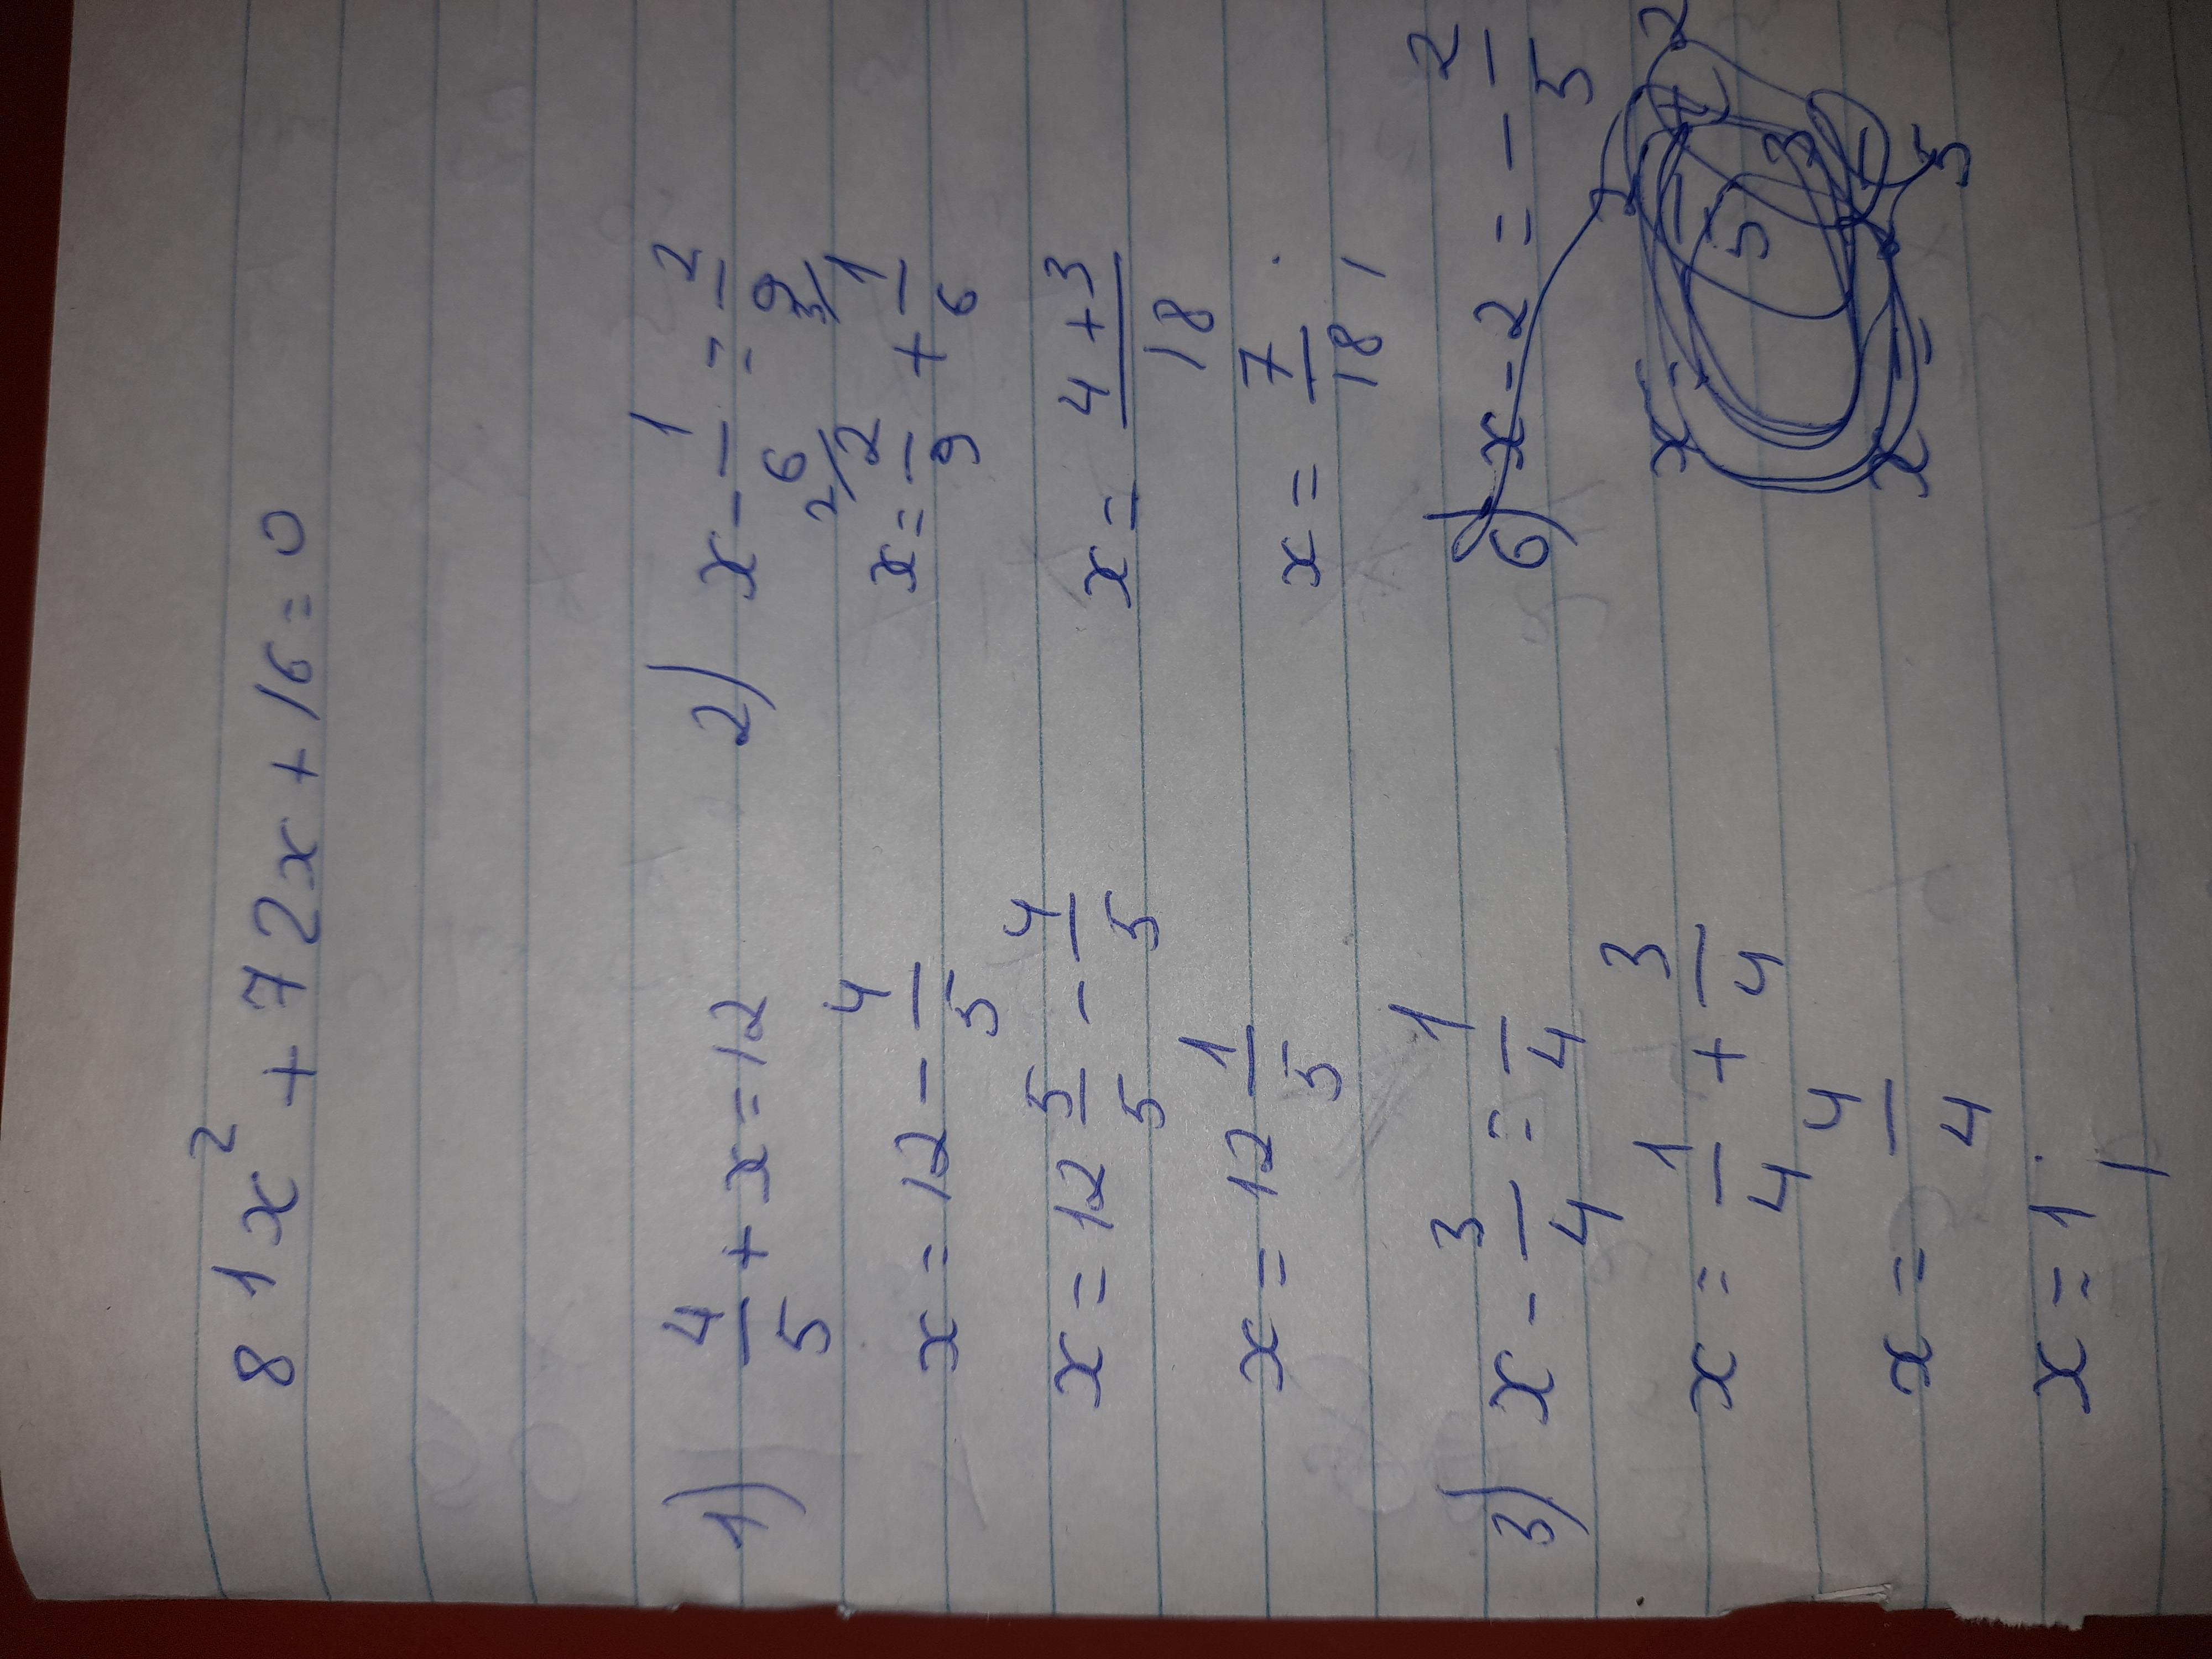 81x² + 72x + 16 = 0
1) 4/5 + x = 12
x = 12 - 4/5
x = 12 5/5 - 4/5
x = 12 1/5
2) x - 1/6 = 2/9
x = 2/ 2/9 + 3/ 1/6
x = (4 + 3)/18
x = 7/18
3) x - 3/4 = 1/4
x = 1/4 + 3/4
x = 4/4
x = 1
6) x - 2 = - 2/5